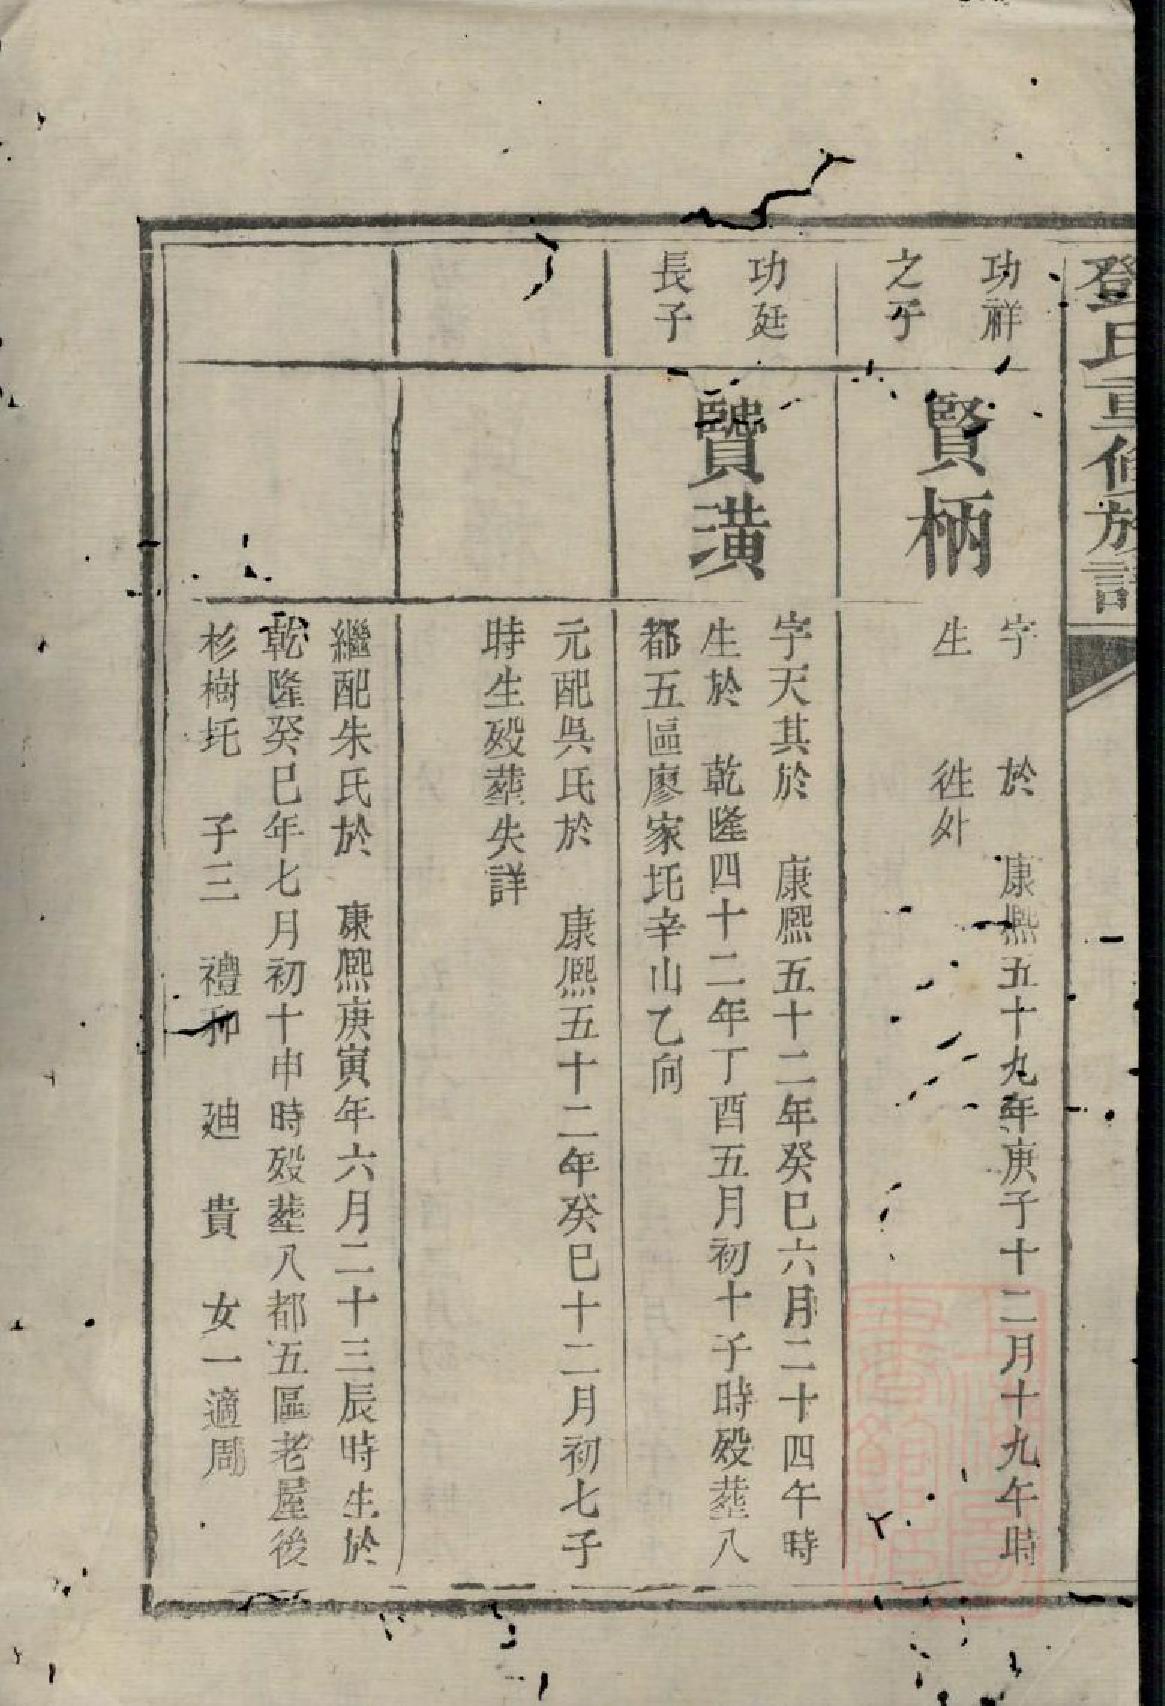 鄧氏重修族譜
功祥
之子
賢柄
字　於　康熙五十九年庚子十二月十九午時
生　徃外
功廷
長子
賢潢
字天其於　康熙五十二年癸巳六月二十四午時
生於　乾隆四十二年丁酉五月初十子時殁塟八
都五區廖家圫辛山乙向
元配吳氏於　康熙五十二年癸巳十二月初七子
時生殁塟失詳
繼配朱氏於　康熙庚寅年六月二十三辰時生於
乾隆癸巳年七月初十申時殁塟八都五區老屋後
杉樹圫　子三　禮　廸　貴　女一適周